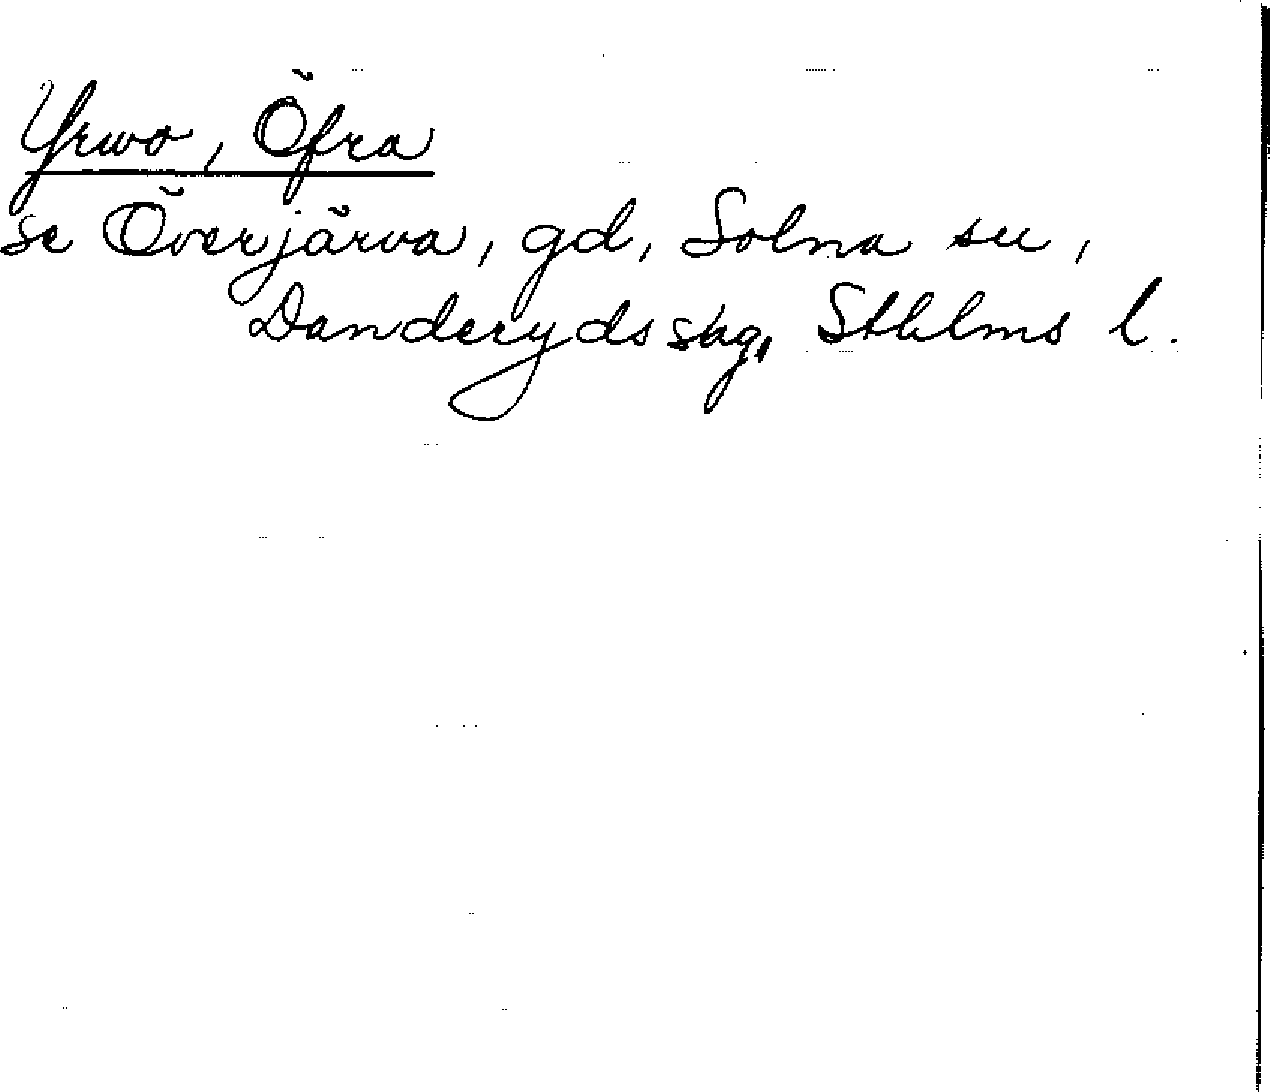 Yrwo, Öfra
se Överjärva, gd, Solna sn,
Danderyds skg, Sthlms l.